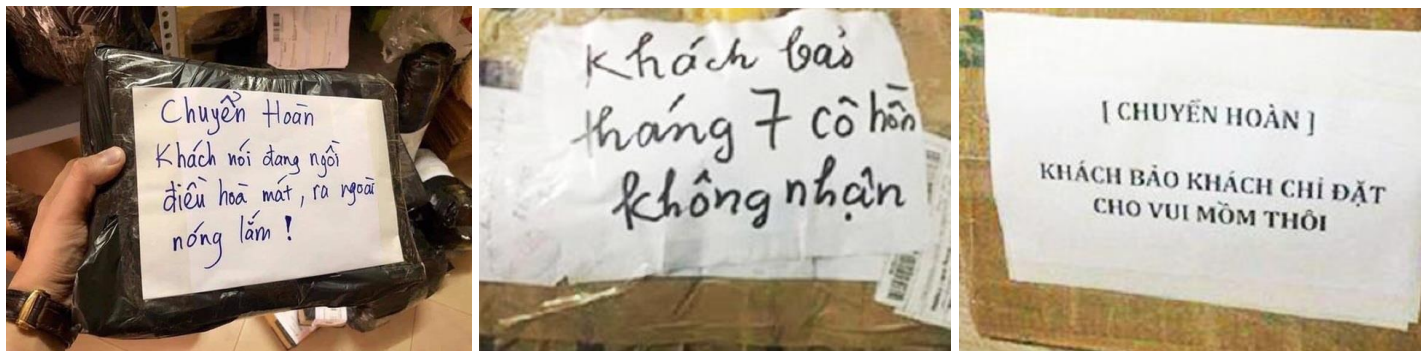 Chuyển Hoàn
Khách nói đang ngồi
điều hoà mát, ra ngoài
nóng lắm !
Khách bảo
tháng 7 cô hồn
không nhận
[ CHUYỂN HOÀN ]
KHÁCH BẢO KHÁCH CHỈ ĐẶT
CHO VUI MỒM THÔI